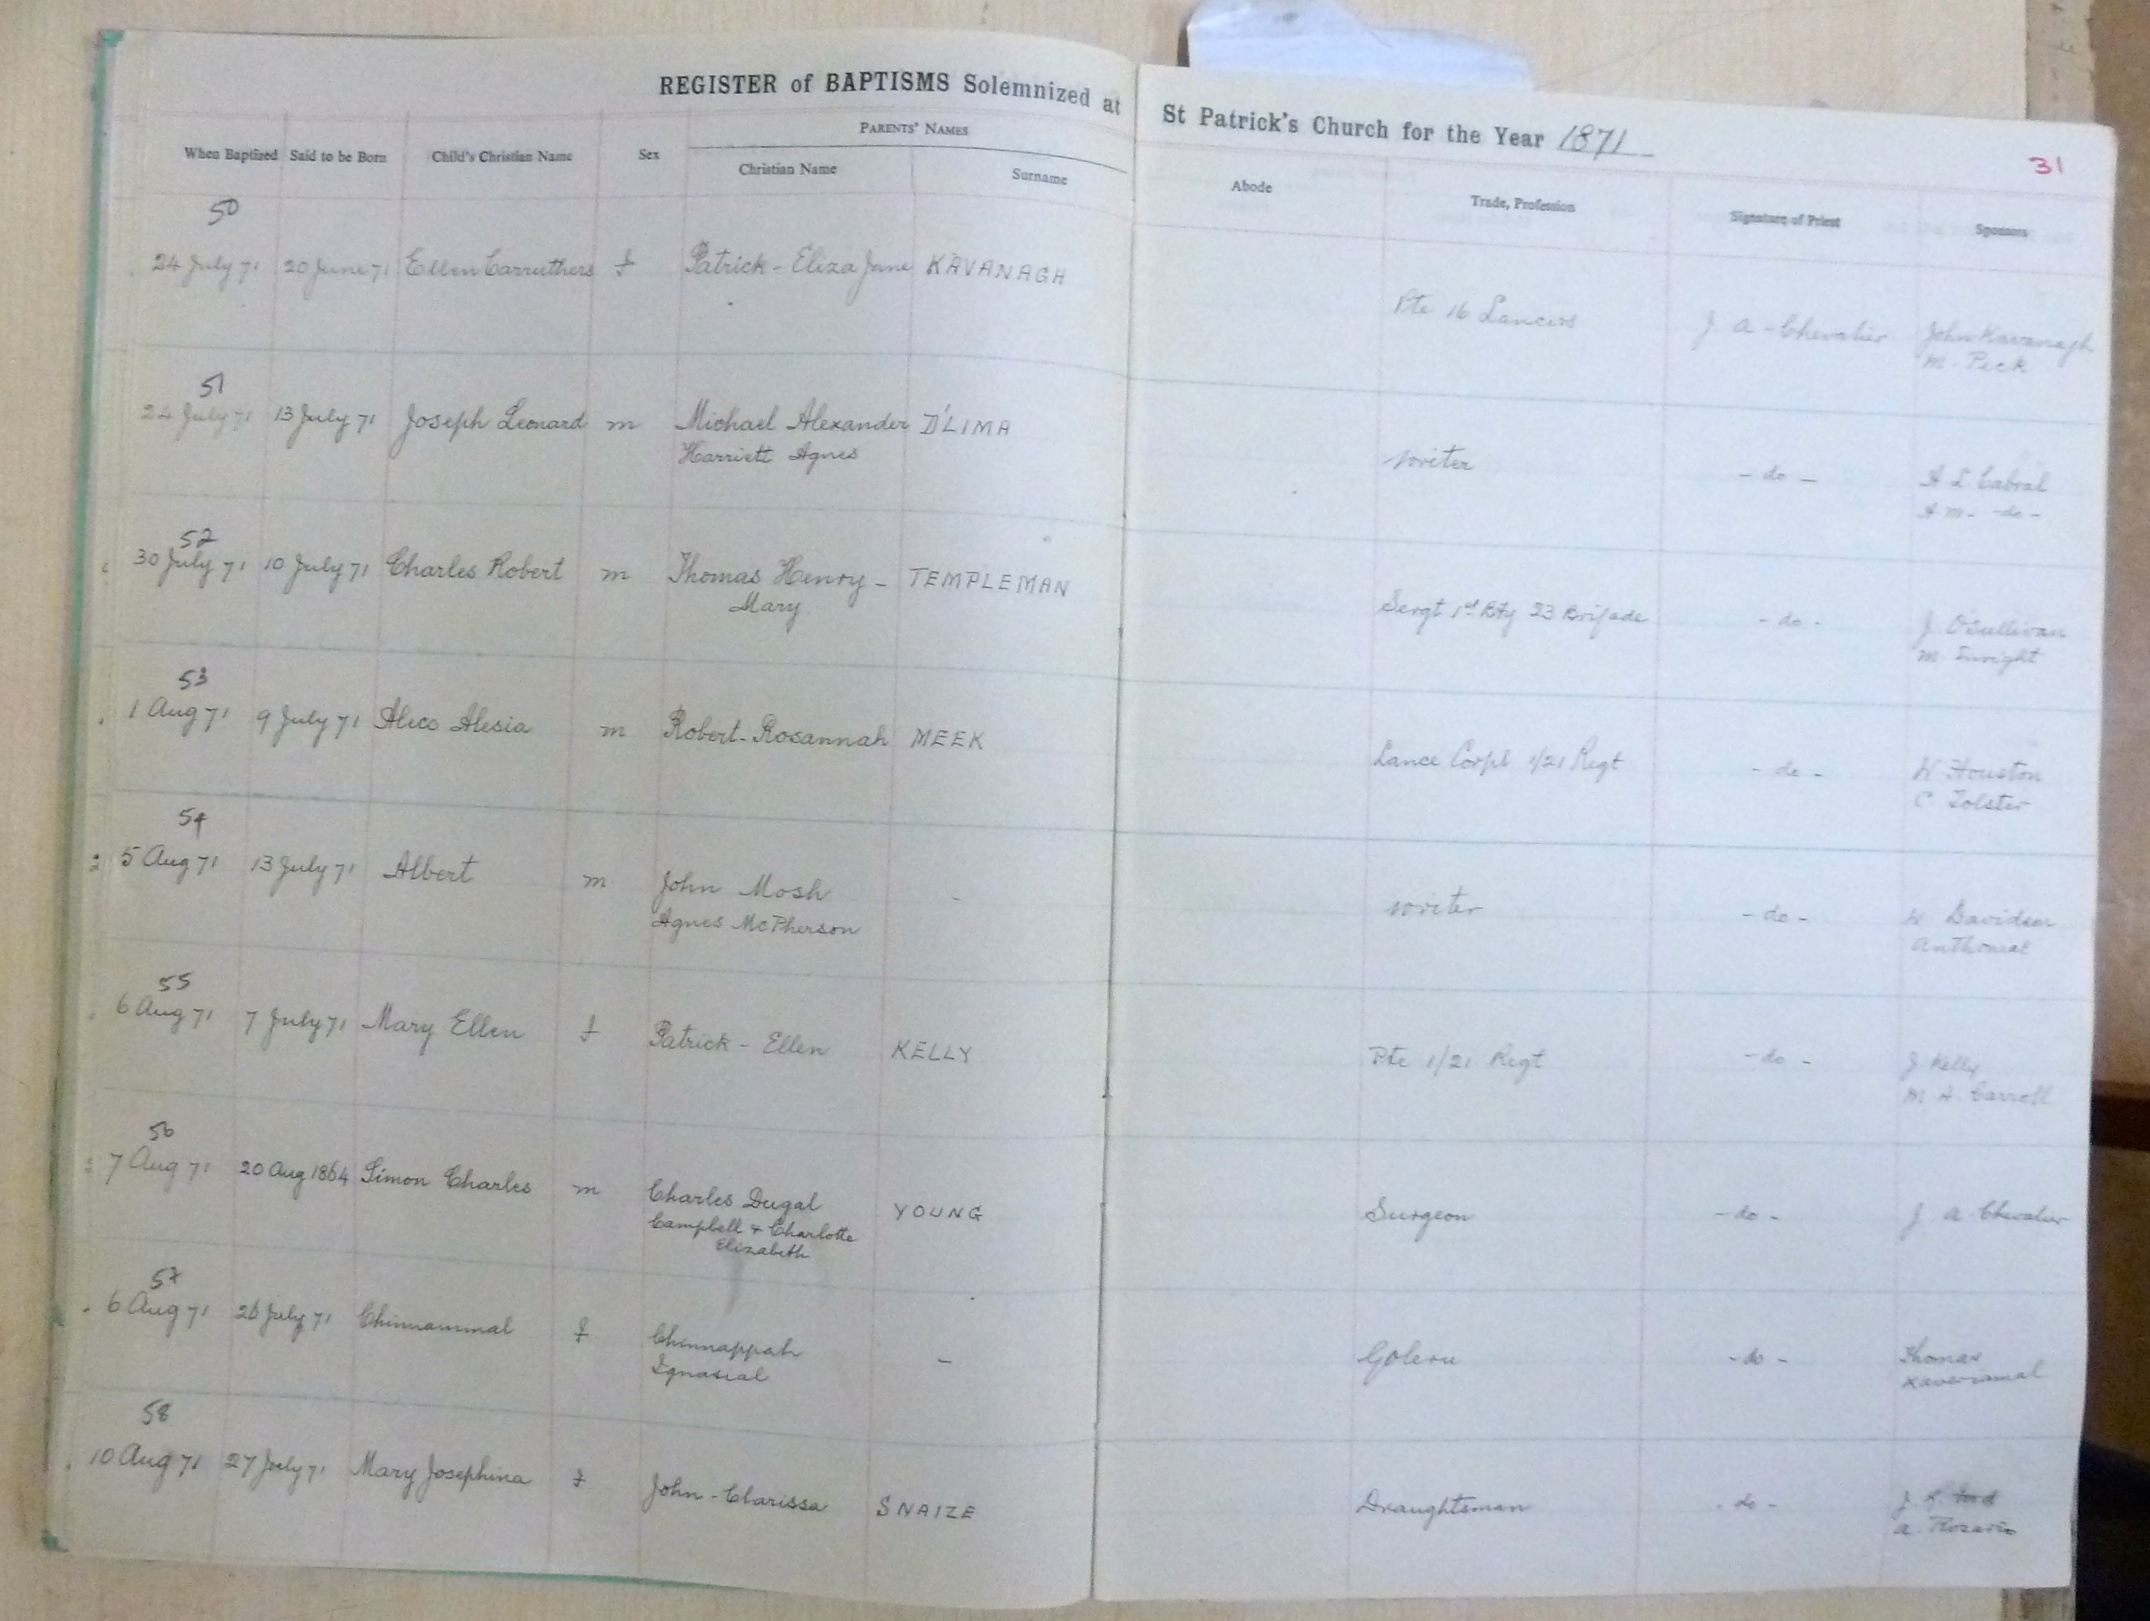 REGISTER of BAPTISMS Solemnized at St Patrick's Church for the Year 1871
31
PARENTS' NAMES
When Baptized Said to be Born Child's Christian Name Sex Christian Name Surname Abode Trade, Profession Signature of Priest Sponsors
50
24 July 71 20 June 71 Ellen Carruthers f Patrick - Eliza Jane KAVANAGH Pte 16 Lancers J. A - Chevalier John Kavanagh
M. Peck
51
24 July 71 13 July 71 Joseph Leonard m Michael Alexander D'LIMA writer - do - A L Cabral
Harriett Agnes A M - do -
52
30 July 71 10 July 71 Charles Robert m Thomas Henry - TEMPLEMAN Sergt 1st Bty 23 Brigade - do - J. O'Sullivan
Mary. M. Enright
53
1 Aug 71 9 July 71 Aleco Alesia m Robert - Rosannah MEEK Lance Corpl 1/21 Regt - do - W Houston
C Tolster
54
5 Aug 71 13 July 71 Albert m John Mosh - writer - do - W Davidson
Agnes McPherson Anthonial
55
6 Aug 71 7 July 71 Mary Ellen f Patrick - Ellen KELLY Pte 1/21 Regt - do - J. Kelly
M. A. Carroll
56
7 Aug 71 20 Aug 1864 Simon Charles m Charles Dugal YOUNG Surgeon - do - J. A Chevalier
Campbell + Charlotte
Elizabeth
57
6 Aug 71 26 July 71 Chinnammal f Chinnappah - - do - Thomas
Ignasial Xaveriamal
58
10 Aug 71 27 July 71 Mary Josephina f John - Clarissa SNAIZE Draughtsman - do - J.
A. Rozario